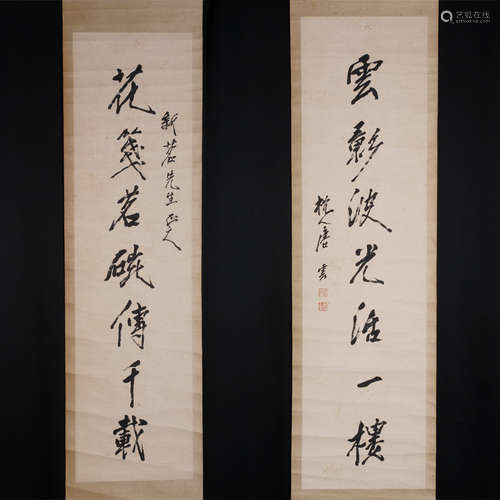 雲影波光活一樓
槐人唐雲
花箋茗碗傳千載
新茗先生正之
艺狐在线